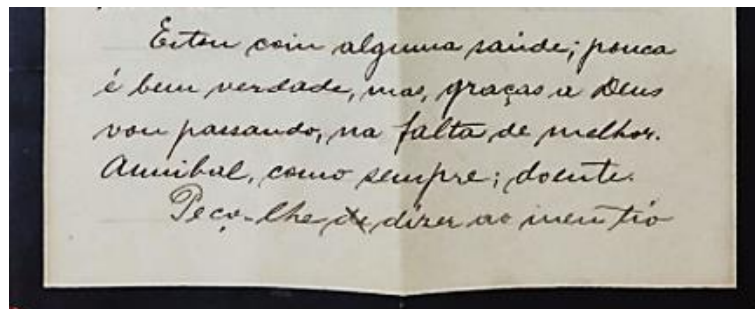 Estou com alguma saúde; pouca
é bem verdade, mas, graças a Deus
vou passando, na falta de melhor.
Annibal, como sempre; doente.
Peço-lhe de dizer ao meu tio